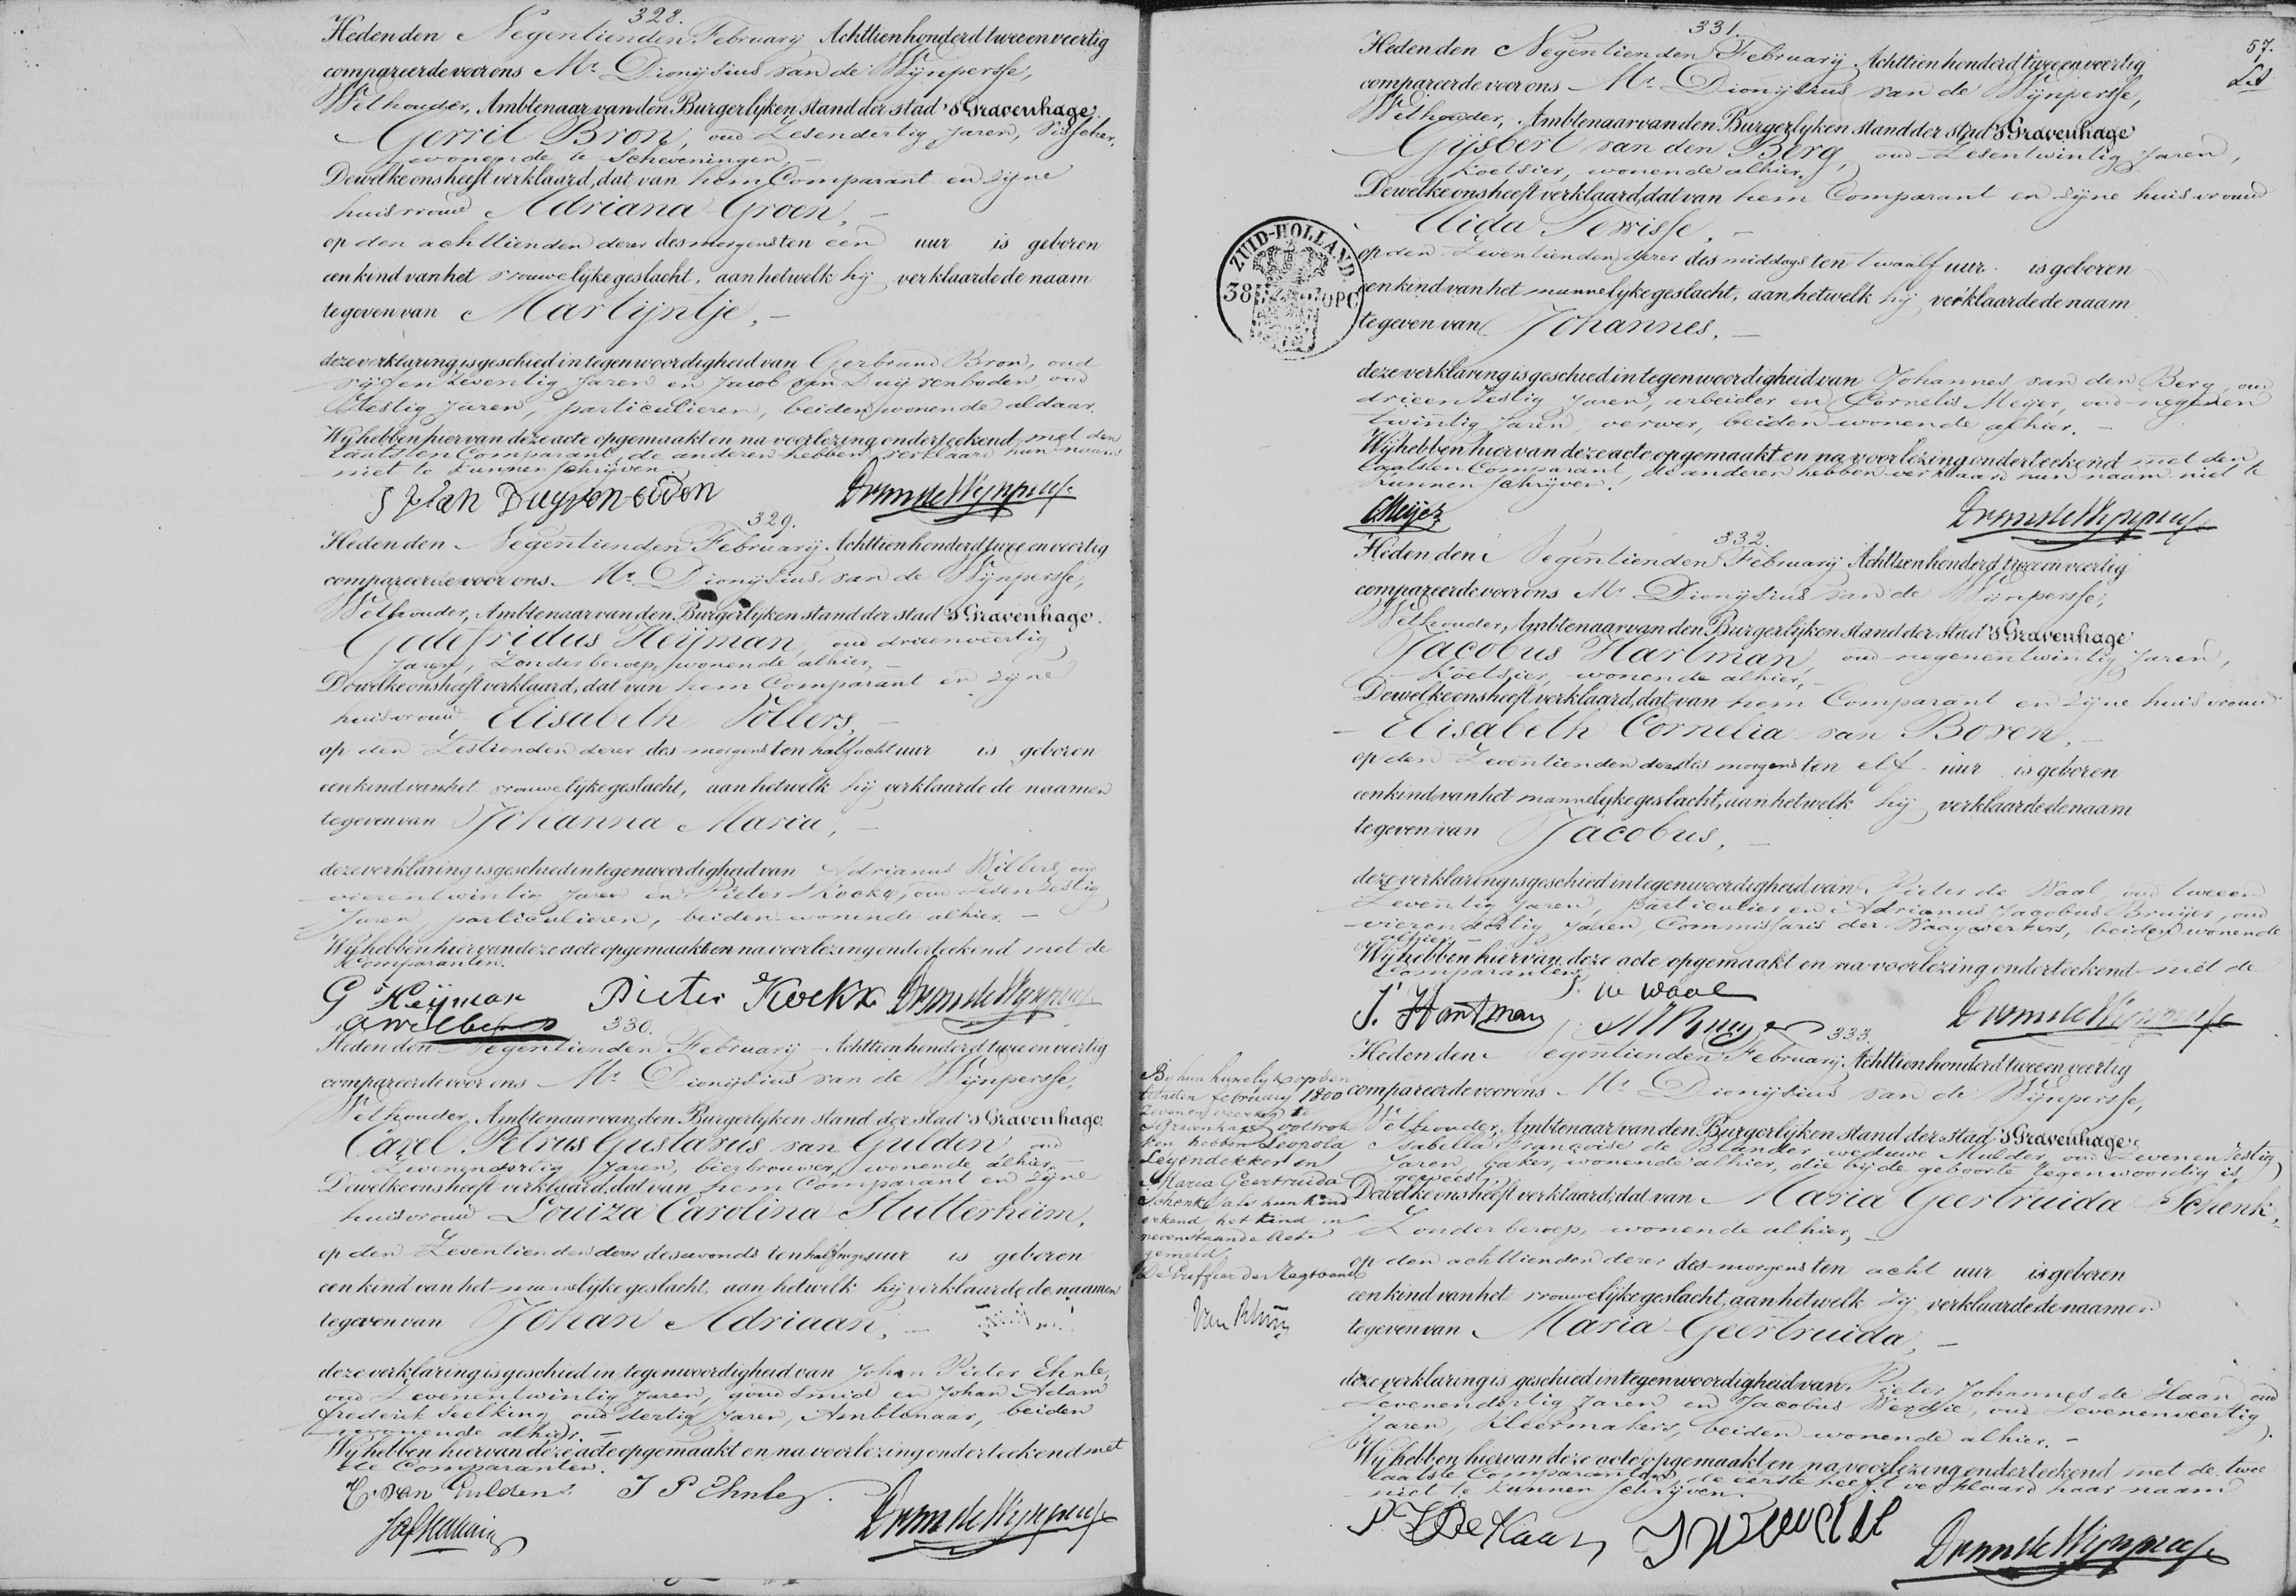 328.
Heden den Negentienden February Achttienhonderd twee en veertig
compareerde voor ons Mr. Dionysius van de Wijnpersse,
Wethouder, Ambtenaar van den Burgerlyken stand der stad 's Gravenhage.
Gerrit Bron, oud Zesendertig Jaren, Visscher,
wonende te Scheveningen, –
Dewelke ons heeft verklaard, dat van hem Comparant en zijne
huisvrouw Adriana Groen, –
op den achttienden dezer des morgens ten een uur is geboren
een kind van het vrouwelyke geslacht, aan hetwelk hij verklaarde de naam
te geven van Martijntje, –
deze verklaring is geschied in tegenwoordigheid van Gerbrand Bron, oud
vijfenzeventig Jaren en Jacob van Duyvenboden, oud
Zestig Jaren, particulieren, beiden wonende aldaar.
Wij hebben hiervan deze acte opgemaakt en na voorlezing onderteekend met den
laatsten Comparant, de anderen hebben verklaard hun naam
niet te kunnen schrijven.
329.
Heden den Negentienden February Achttienhonderd twee en veertig
compareerde voor ons Mr. Dionysius van de Wijnpersse,
Wethouder, Ambtenaar van den Burgerlyken stand der stad 's Gravenhage.
Godefridus Heijman, oud drieenveertig
Jaren, Zonder beroep, wonende alhier, –
Dewelke ons heeft verklaard, dat van hem Comparant en zijne
huisvrouw Elisabeth Vollers, –
op den Zestienden dezer des morgens ten half acht uur is geboren
een kind van het vrouwelyke geslacht, aan hetwelk hij verklaarde de naamen
te geven van Johanna Maria, –
deze verklaring is geschied in tegenwoordigheid van Adrianus Wilbers, oud
vierentwintig Jaren en Pieter Kockx, oud Zesenzestig
Jaren, particulieren, beiden wonende alhier. –
Wij hebben hiervan deze acte opgemaakt en na voorlezing onderteekend met de
Comparanten.
G Heijman Pieter Kockx
A Wilbers
330.
Heden den Negentienden February Achttienhonderd twee en veertig
compareerde voor ons Mr. Dionysius van de Wijnpersse,
Wethouder, Ambtenaar van den Burgerlyken stand der stad 's Gravenhage.
Carel Petrus Gustavus van Gulden, oud
Zevenendertig Jaren, bierbrouwer, wonende alhier, –
Dewelke ons heeft verklaard, dat van hem Comparant en zijne
huisvrouw Louiza Carolina Stutterheim,
op den Zeventienden dezer des avonds ten half negen uur is geboren
een kind van het mannelijke geslacht, aan hetwelk hij verklaarde de naamen
te geven van Johan Adriaan, –
deze verklaring is geschied in tegenwoordigheid van Johan Pieter Ehnle,
oud Zevenentwintig Jaren, goudsmid en Johan Adam
Frederik Seelking, oud dertig Jaren, Ambtenaar, beiden
wonende alhier. –
Wij hebben hiervan deze acte opgemaakt en na voorlezing onderteekend met
de Comparanten.
C. van Gulden. J P Ehnle.
331.
57.
Heden den Negentienden February Achttienhonderd twee en veertig
compareerde voor ons Mr. Dionysius van de Wijnpersse,
Wethouder, Ambtenaar van den Burgerlyken stand der stad 's Gravenhage
Gijsbert van den Berg, oud Zesentwintig Jaren,
Koetsier, wonende alhier,
Dewelke ons heeft verklaard, dat van hem Comparant en zijne huisvrouw
Aida Tewisse, –
op den Zeventienden dezer des middags ten twaalf uur is geboren
een kind van het mannelyke geslacht, aan hetwelk hij verklaarde de naam
te geven van Johannes, –
ZUID-HOLLAND
38 OPC
deze verklaring is geschied in tegenwoordigheid van Johannes van den Berg, oud
drieenzestig Jaren, arbeider en Cornelis Meijer, oud negenen
twintig Jaren, verwer, beiden wonende alhier. –
Wij hebben hiervan deze acte opgemaakt en na voorlezing onderteekend met den
laatsten Comparant, de anderen hebben verklaard hun naam niet te
kunnen schrijven.
CMeijer
332.
Heden den Negentienden February Achttienhonderd twee en veertig
compareerde voor ons Mr Dionysius van de Wijnpersse,
Wethouder, Ambtenaar van den Burgerlyken stand der stad 's Gravenhage
Jacobus Hartman, oud negenentwintig Jaren,
Koetsier, wonende alhier, –
Dewelke ons heeft verklaard, dat van hem Comparant en zijne huisvrouw
Elisabeth Cornelia van Boven, –
op den Zeventienden dezer des morgens ten elf uur is geboren
een kind van het mannelyke geslacht, aan hetwelk hij verklaarde de naam
te geven van Jacobus, –
deze verklaring is geschied in tegenwoordigheid van Pieter de Waal, oud tweeen
Zeventig Jaren, particulier en Adrianus Jacobus Bruijer, oud
vierendertig Jaren, Commissaris der Waagwerkers, beiden wonende
alhier. –
Wij hebben hiervan deze acte opgemaakt en na voorlezing onderteekend met de
Comparanten.
P. de Waal
J. Hartman
333.
Heden den Negentienden February Achttienhonderd twee en veertig
compareerde voor ons Mr Dionysius van de Wijnpersse,
Wethouder, Ambtenaar van den Burgerlyken stand der stad 's Gravenhage
Isabella Françoise de Blander, weduwe Mulder, oud Zevenenzestig
Jaren, baker, wonende alhier, die bij de geboorte tegenwoordig is
geweest,
Dewelke ons heeft verklaard, dat van Maria Geertruida Schenk,
Zonder beroep, wonende alhier, –
op den achttienden dezer des morgens ten acht uur is geboren
een kind van het vrouwelijke geslacht, aan hetwelk zij verklaarde de naamen
te geven van Maria Geertruida, –
deze verklaring is geschied in tegenwoordigheid van Pieter Johannes de Haan, oud
Zevenendertig Jaren en Jacobus, oud Zevenenveertig
Jaren, kleermakers, beiden wonende alhier. –
Wij hebben hiervan deze acte opgemaakt en na voorlezing onderteekend met de twee
laatste Comparanten, de eerste heeft verklaard haar naam
niet te kunnen schrijven.
P. J. De Haan
By hun huwelyk op den
tienden february 1800
zevenenveertig te
s Gravenhage voltrok
ken hebben Leopold
Leyendekker en
Maria Geertruida
Schenk als hun kind
erkend, het kind in
nevenstaande Acte
gemeld.
De Griffier der Regtbank